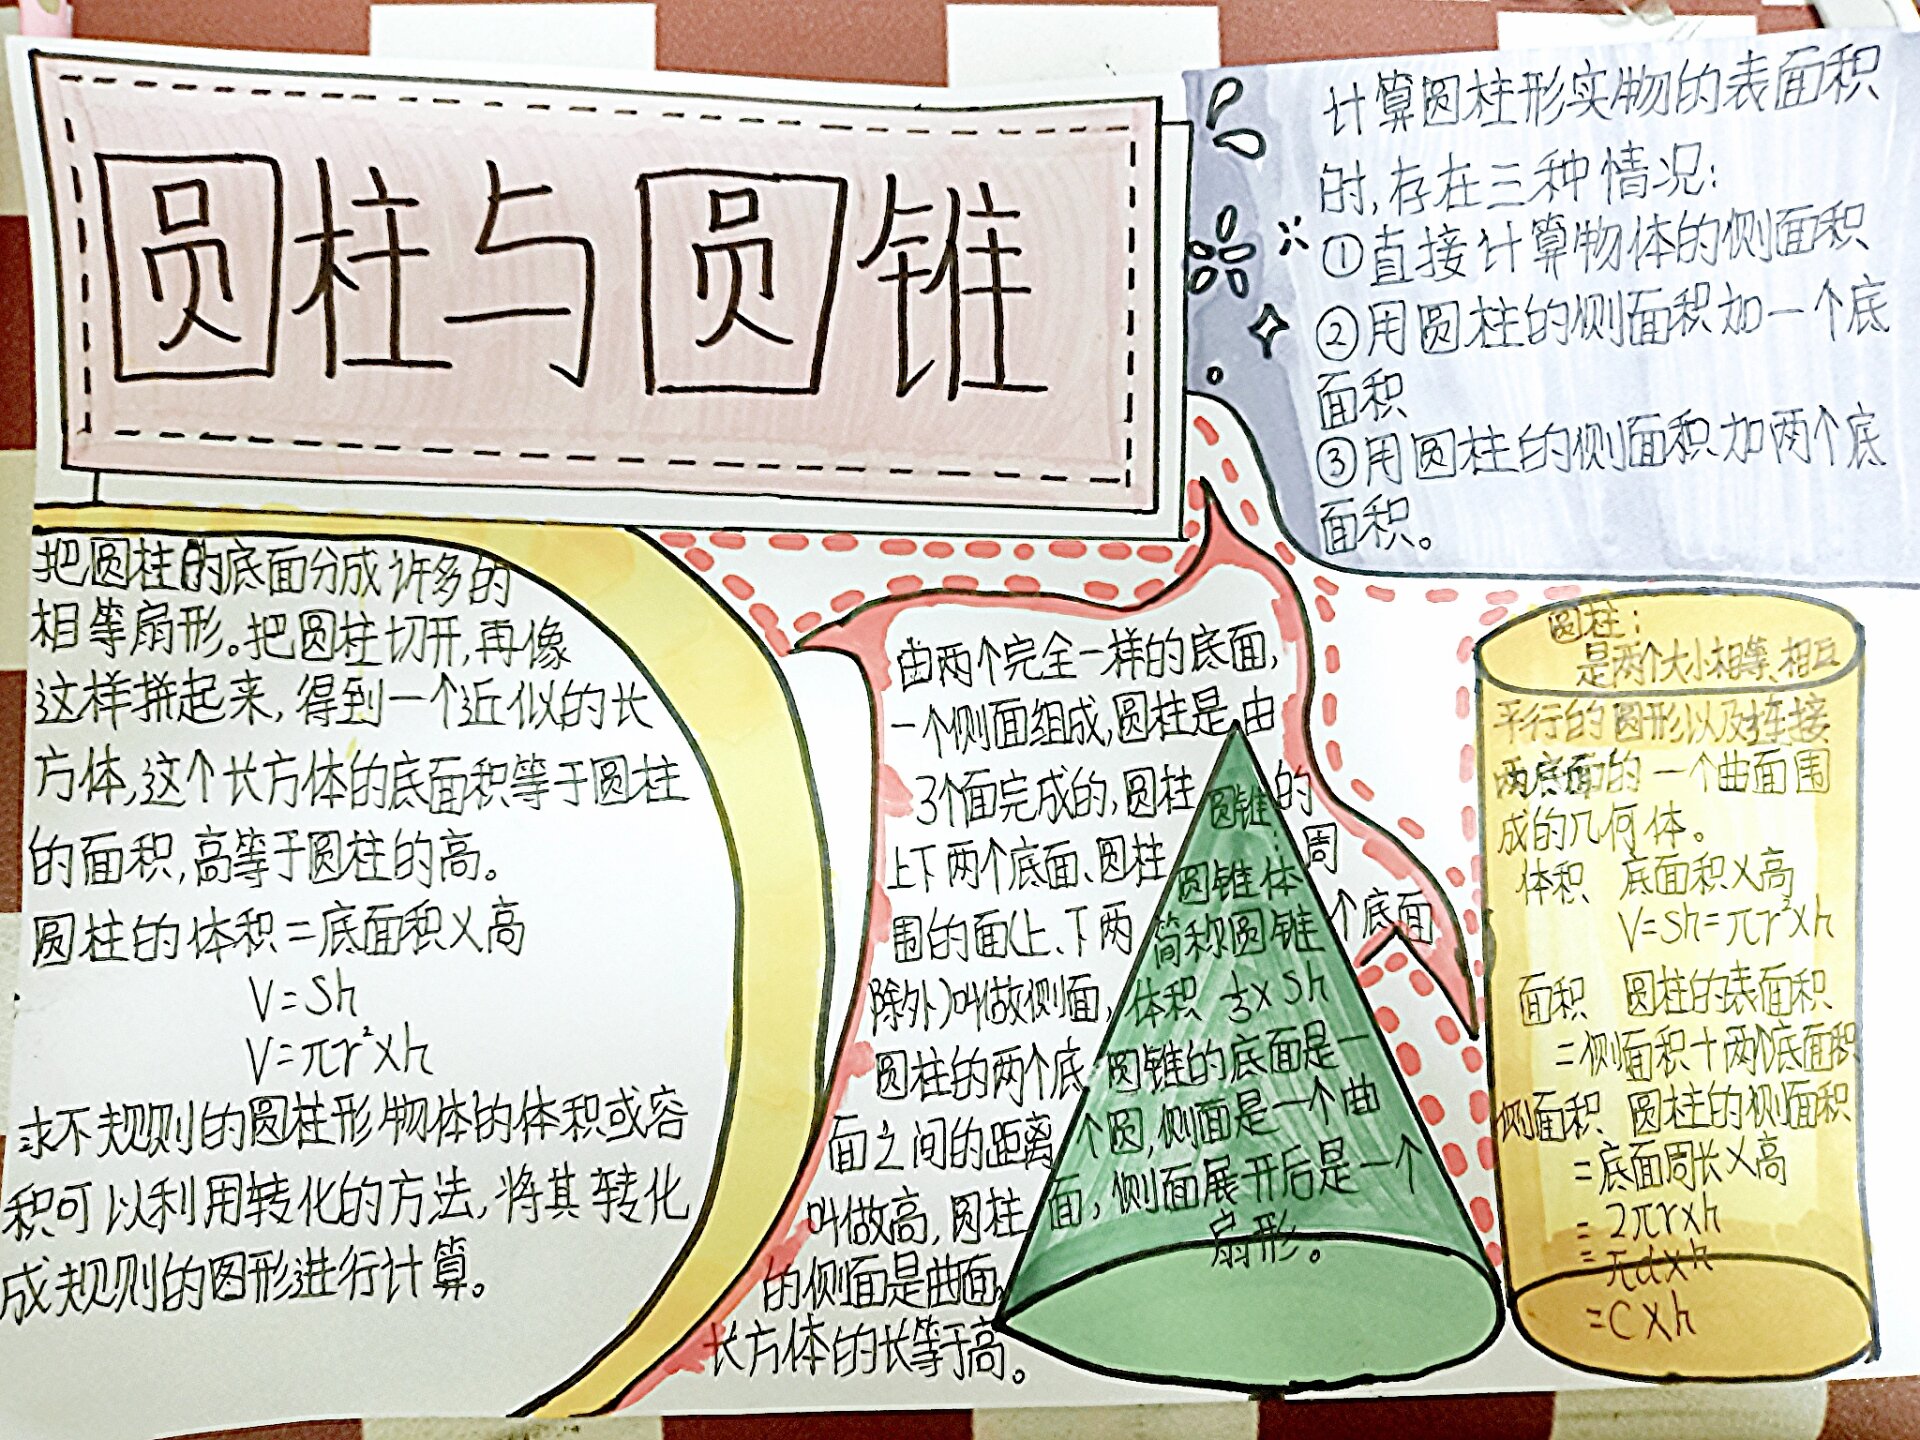 圆柱与圆锥
计算圆柱形实物的表面积
时,存在三种情况:
①直接计算物体的侧面积
②用圆柱的侧面积加一个底
面积
③用圆柱的侧面积加两个底
面积。
把圆柱的底面分成许多的
相等扇形。把圆柱切开,再像
这样拼起来,得到一个近似的长
方体,这个长方体的底面积等于圆柱
的面积,高等于圆柱的高。
圆柱的体积=底面积×高
V=Sh
V=πr²×h
求不规则的圆柱形物体的体积或容
积可以利用转化的方法,将其转化
成规则的图形进行计算。
由两个完全一样的底面,
一个侧面组成,圆柱是由
3个面完成的,圆柱的
上下两个底面、圆柱周
围的面(上、下两个底面
除外)叫做侧面,
圆柱的两个底
面之间的距离
叫做高,圆柱
的侧面是曲面,
长方体的长等于高。
圆锥:
圆锥体
简称圆锥
体积 ⅓×Sh
圆锥的底面是一
个圆,侧面是一个曲
面,侧面展开后是一个
扇形。
圆柱:
是两个大小相等、相互
平行的圆形以及连接
两底面的一个曲面围
成的几何体。
体积 底面积×高
V=Sh=πr²×h
面积 圆柱的表面积
=侧面积+两个底面积
侧面积 圆柱的侧面积
=底面周长×高
=2πr×h
=πd×h
=C×h